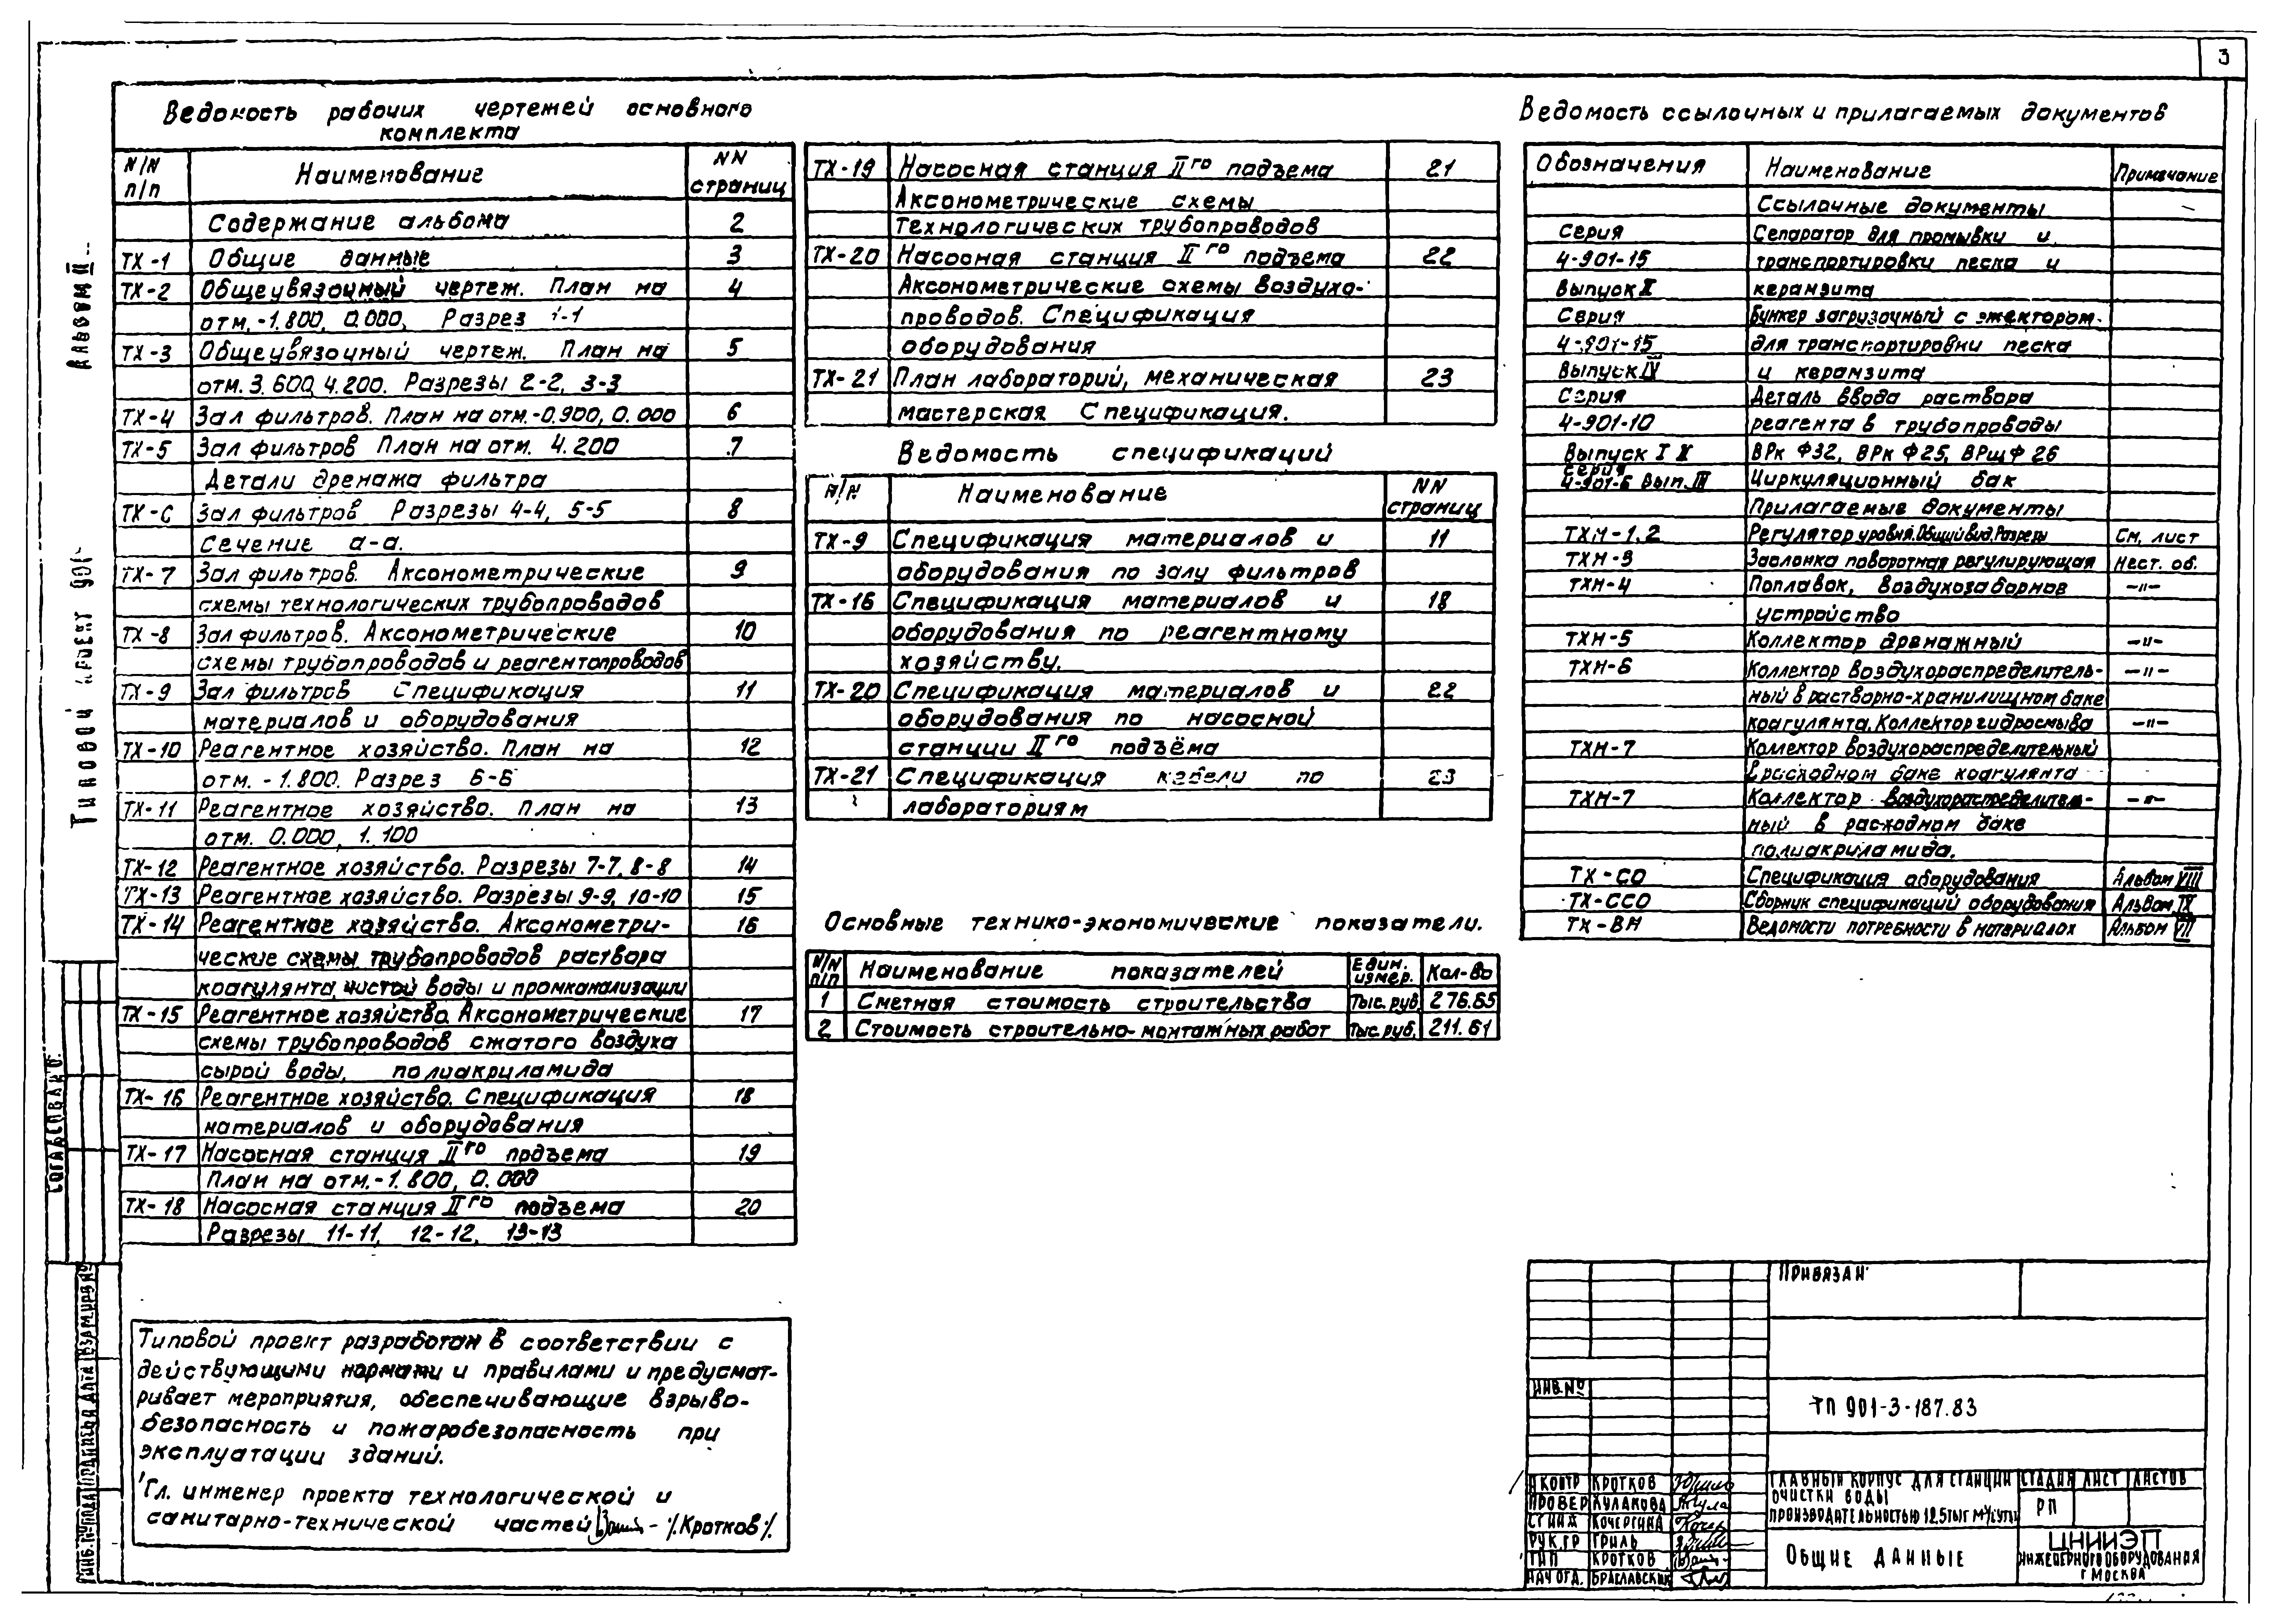 3
Альбом II
Типовой проект 901-
Ведомость рабочих чертежей основного
комплекта
N/N п/п Наименование NN страниц
Содержание альбома 2
ТХ-1 Общие данные 3
ТХ-2 Общеувязочный чертеж. План на 4
отм.-1.800, 0.000, Разрез 1-1
ТХ-3 Общеувязочный чертеж. План на 5
отм. 3.600, 4.200. Разрезы 2-2, 3-3
ТХ-4 Зал фильтров. План на отм.-0.900, 0.000 6
ТХ-5 Зал фильтров План на отм. 4.200 7
Детали дренажа фильтра
ТХ-6 Зал фильтров Разрезы 4-4, 5-5 8
Сечение а-а.
ТХ-7 Зал фильтров. Аксонометрические 9
схемы технологических трубопроводов
ТХ-8 Зал фильтров. Аксонометрические 10
схемы трубопроводов и реагентопроводов
ТХ-9 Зал фильтров Спецификация 11
материалов и оборудования
ТХ-10 Реагентное хозяйство. План на 12
отм. -1.800. Разрез 6-6
ТХ-11 Реагентное хозяйство. План на 13
отм. 0.000, 1.100
ТХ-12 Реагентное хозяйство. Разрезы 7-7, 8-8 14
ТХ-13 Реагентное хозяйство. Разрезы 9-9, 10-10 15
ТХ-14 Реагентное хозяйство. Аксонометри- 16
ческие схемы трубопроводов раствора
коагулянта, чистой воды и промканализации
ТХ-15 Реагентное хозяйство. Аксонометрические 17
схемы трубопроводов сжатого воздуха
сырой воды, полиакриламида
ТХ-16 Реагентное хозяйство. Спецификация 18
материалов и оборудования
ТХ-17 Насосная станция IIго подъема 19
План на отм.-1.800, 0.000
ТХ-18 Насосная станция IIго подъема 20
Разрезы 11-11, 12-12, 13-13
Типовой проект разработан в соответствии с
действующими нормами и правилами и предусмат-
ривает мероприятия, обеспечивающие взрыво-
безопасность и пожаробезопасность при
эксплуатации зданий.
Гл. инженер проекта технологической и
санитарно-технической частей /Кротков/
ТХ-19 Насосная станция IIго подъема 21
Аксонометрические схемы
технологических трубопроводов
ТХ-20 Насосная станция IIго подъема 22
Аксонометрические схемы воздухо-
проводов. Спецификация
оборудования
ТХ-21 План лабораторий, механическая 23
мастерская Спецификация.
Ведомость спецификаций
N/N Наименование NN страниц
ТХ-9 Спецификация материалов и 11
оборудования по залу фильтров
ТХ-16 Спецификация материалов и 18
оборудования по реагентному
хозяйству.
ТХ-20 Спецификация материалов и 22
оборудования по насосной
станции IIго подъёма
ТХ-21 Спецификация мебели по 23
лабораториям
Основные технико-экономические показатели.
N/N п/п Наименование показателей Един. измер. Кол-во
1 Сметная стоимость строительства Тыс. руб. 276.65
2 Стоимость строительно-монтажных работ Тыс. руб. 211.61
Ведомость ссылочных и прилагаемых документов
Обозначения Наименование Примечание
Ссылочные документы
Серия Сепаратор для промывки и
4-901-15 транспортировки песка и
Выпуск II керамзита
Серия Бункер загрузочный с эжектором
4-901-15 для транспортировки песка
Выпуск IV и керамзита
Серия Деталь ввода раствора
4-901-10 реагента в трубопроводы
Выпуск I II ВРк Ф32, ВРк Ф25, ВРщ Ф 26
серия 4-901-6 Вып. III Циркуляционный бак
Прилагаемые документы
ТХН-1.2 Регулятор уровня. Общий вид. Разрезы См. лист
ТХН-3 Заслонка поворотная регулирующая Нест. об.
ТХН-4 Поплавок, воздухозаборное -"-
устройство
ТХН-5 Коллектор дренажный -"-
ТХН-6 Коллектор воздухораспределитель- -"-
ный в растворно-хранилищном баке
коагулянта. Коллектор гидросмыва -"-
ТХН-7 Коллектор воздухораспределительный
в расходном баке коагулянта
ТХН-7 Коллектор воздухораспределитель- -"-
ный в расходном баке
полиакриламида.
ТХ-СО Спецификация оборудования Альбом VIII
ТХ-ССО Сборник спецификаций оборудования Альбом IX
ТХ-ВМ Ведомости потребности в материалах Альбом VII
Привязан
Инв. №
ТП 901-3-187.83
Н контр Кротков
Провер Кулакова
Ст инж Кочергина
Рук. гр Гриль
ГИП Кротков
Нач отд. Браславский
Главный корпус для станции
очистки воды
производительностью 12.5 тыс м³/сутки
Стадия Лист Листов
РП
Общие данные
ЦНИИЭП
инженерного оборудования
г Москва
Согласовано:
Инв. № подл Подпись и дата Взам. инв. №